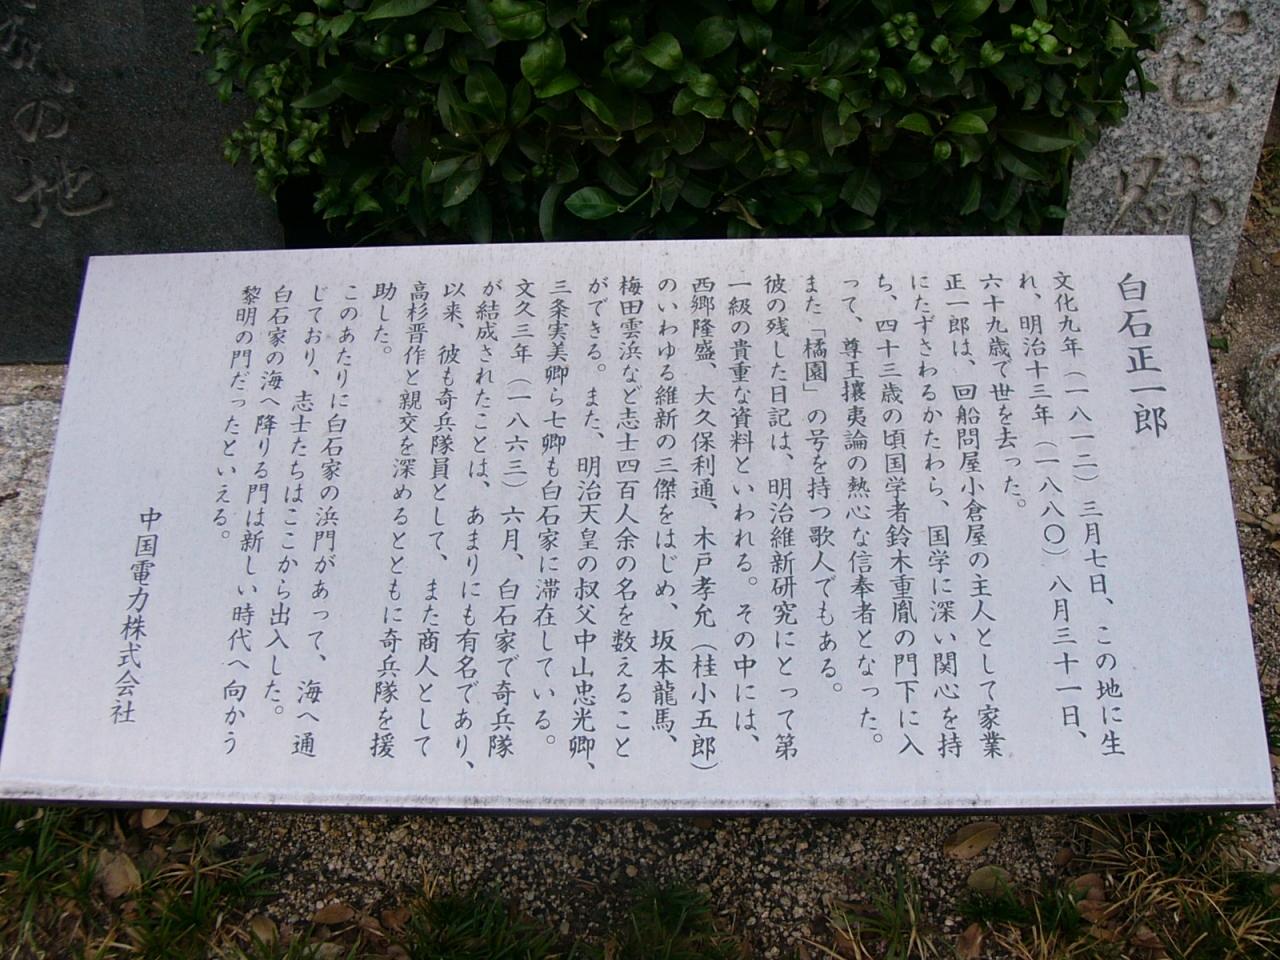 白石正一郎
文化九年(一八一二)三月七日、この地に生
れ、明治十三年(一八八〇)八月三十一日、
六十九歳で世を去った。
正一郎は、回船問屋小倉屋の主人として家業
にたずさわるかたわら、国学に深い関心を持
ち、四十三歳の頃国学者鈴木重胤の門下に入
って、尊王攘夷論の熱心な信奉者となった。
また「橘園」の号を持つ歌人でもある。
彼の残した日記は、明治維新研究にとって第
一級の貴重な資料といわれる。その中には、
西郷隆盛、大久保利通、木戸孝允(桂小五郎)
のいわゆる維新の三傑をはじめ、坂本龍馬、
梅田雲浜など志士四百人余の名を数えること
ができる。また、明治天皇の叔父中山忠光卿、
三条実美卿ら七卿も白石家に滞在している。
文久三年(一八六三)六月、白石家で奇兵隊
が結成されたことは、あまりにも有名であり、
以来、彼も奇兵隊員として、また商人として
高杉晋作と親交を深めるとともに奇兵隊を援
助した。
このあたりに白石家の浜門があって、海へ通
じており、志士たちはここから出入した。
白石家の海へ降りる門は新しい時代へ向かう
黎明の門だったといえる。
中国電力株式会社
の地
宅跡